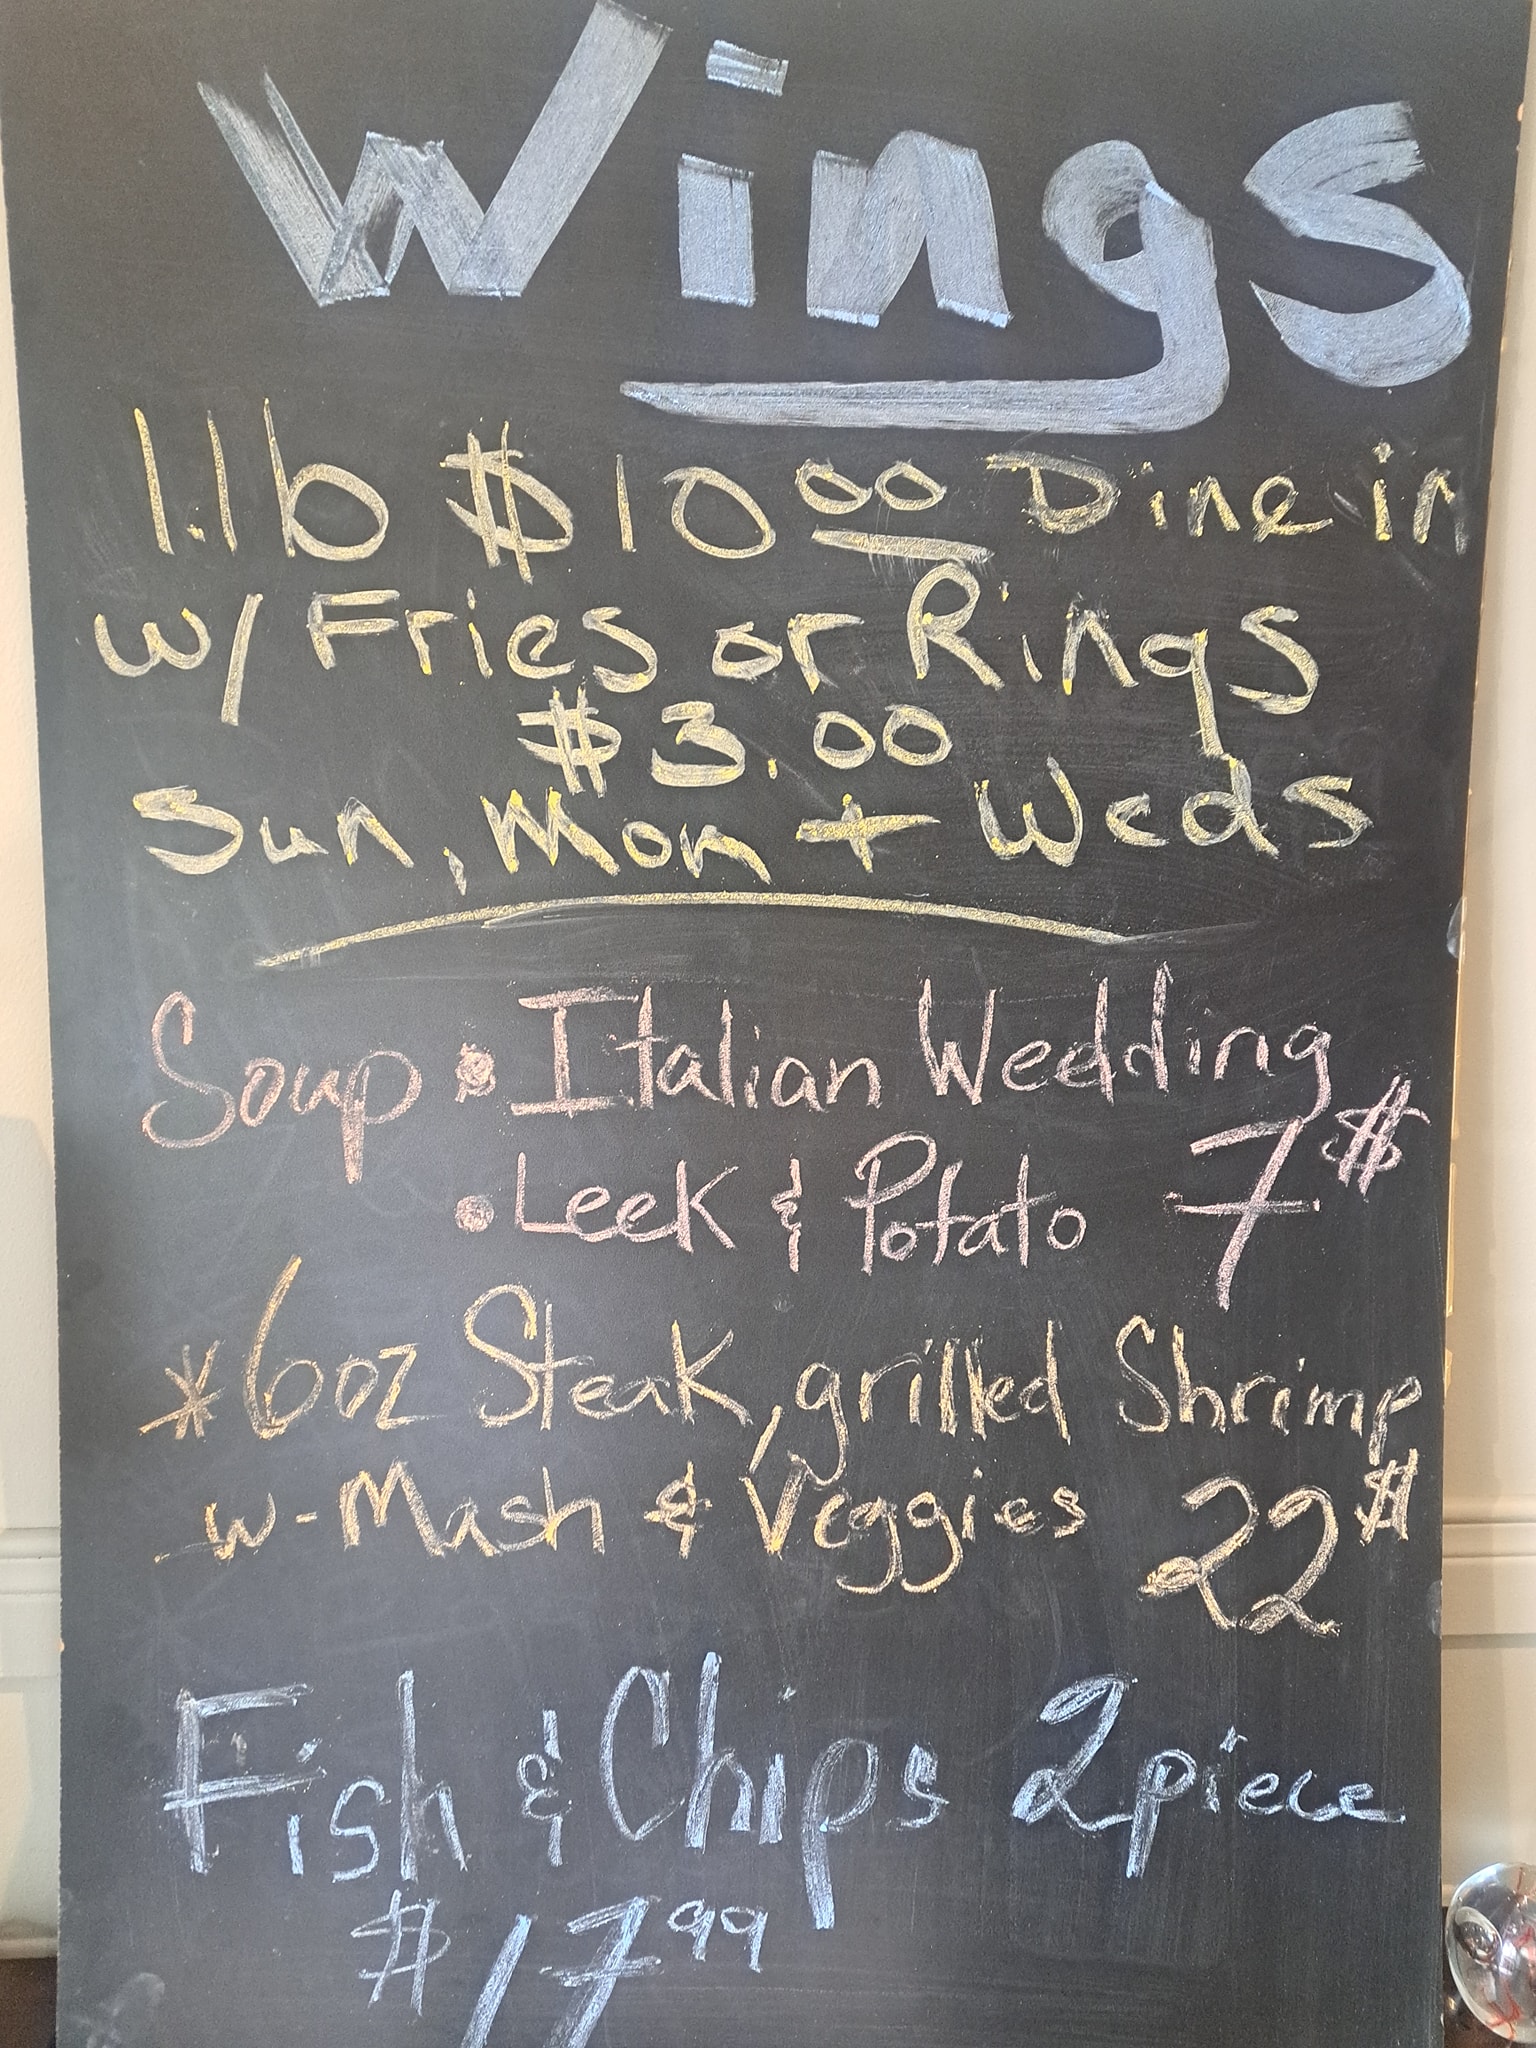 Wings
1.lb $10.00 Dine in
w/ Fries or Rings
$3.00
Sun, Mon + Weds
Soup • Italian Wedding
• Leek & Potato 7$
*6oz Steak, grilled Shrimp
w-Mash & Veggies 22$
Fish & Chips 2piece
$17.99